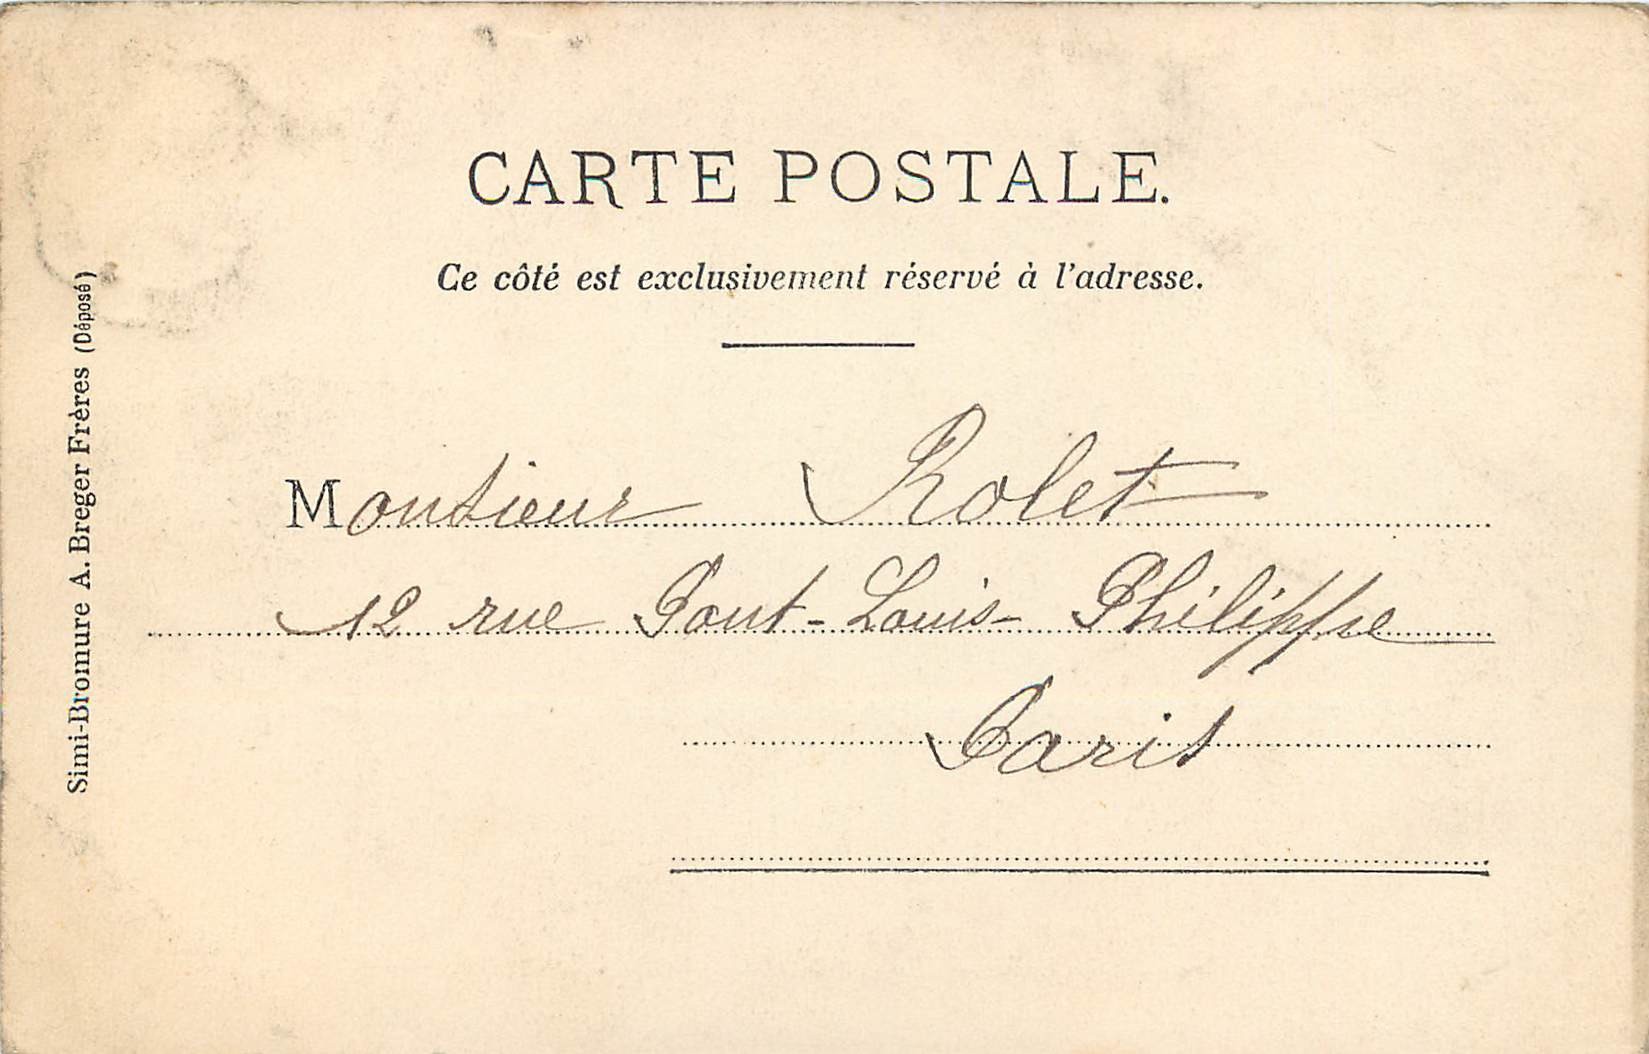 CARTE POSTALE.
Ce côté est exclusivement réservé à l'adresse.
Monsieur Rolet
12 rue Pont-Louis-Philippe
Paris
Simi-Bromure A. Breger Frères (Déposé)